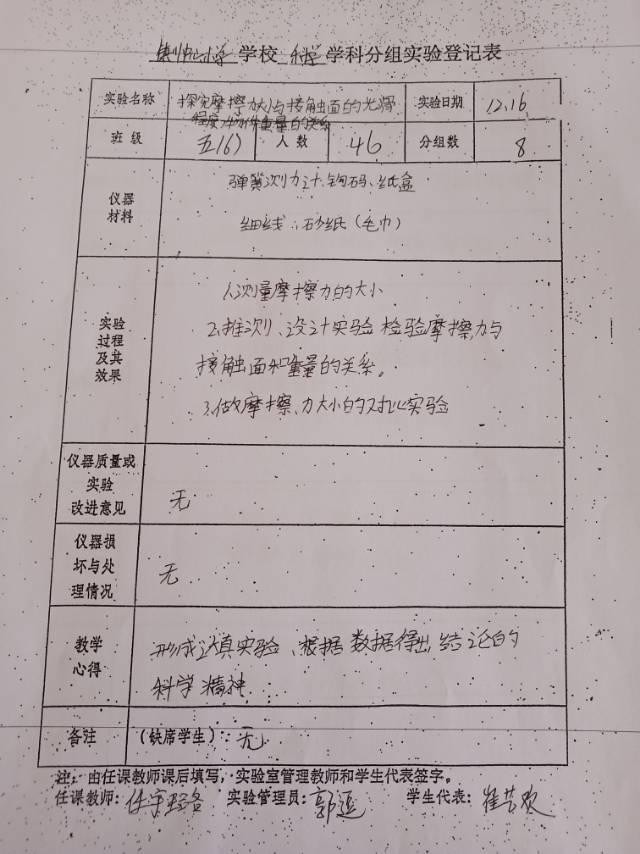 小学 学校 科学 学科分组实验登记表
实验名称 探究摩擦力大小与接触面的光滑 实验日期 12.16
程度、物体重量的关系
班级 五(6) 人数 46 分组数 8
仪器材料 弹簧测力计、钩码、纸盒
细线、砂纸(毛巾)
实验过程及其效果 1.测量摩擦力的大小
2.推测、设计实验 检验摩擦力与
接触面和重量的关系。
3.做摩擦力大小的对比实验
仪器质量或实验改进意见 无
仪器损坏与处理情况 无
教学心得 形成认真实验、根据数据得出结论的
科学精神
备注 (缺席学生):无
注:由任课教师课后填写,实验室管理教师和学生代表签字。
任课教师: 实验管理员:郭 学生代表:崔